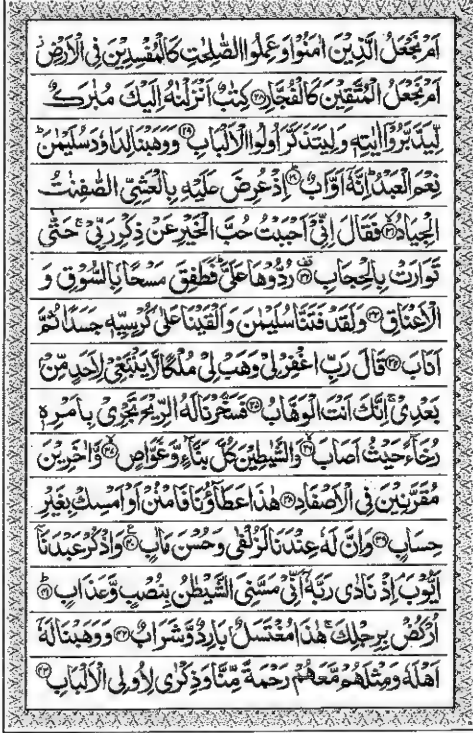 اَمۡ نَجۡعَلُ الَّذِيۡنَ اٰمَنُوۡا وَعَمِلُوا الصّٰلِحٰتِ كَالۡمُفۡسِدِيۡنَ فِى الۡاَرۡضِ
اَمۡ نَجۡعَلُ الۡمُتَّقِيۡنَ كَالۡفُجَّارِ ۲۸ كِتٰبٌ اَنۡزَلۡنٰهُ اِلَيۡكَ مُبٰرَكٌ
لِّيَدَّبَّرُوۡۤا اٰيٰتِهٖ وَلِيَتَذَكَّرَ اُولُوا الۡاَلۡبَابِ ۲۹ وَوَهَبۡنَا لِدَاوٗدَ سُلَيۡمٰنَؕ
نِعۡمَ الۡعَبۡدُؕ اِنَّهٗۤ اَوَّابٌؕ ۳۰ اِذۡ عُرِضَ عَلَيۡهِ بِالۡعَشِىِّ الصّٰفِنٰتُ
الۡجِيَادُۙ ۳۱ فَقَالَ اِنِّىۡۤ اَحۡبَبۡتُ حُبَّ الۡخَيۡرِ عَنۡ ذِكۡرِ رَبِّىۡۚ حَتّٰى
تَوَارَتۡ بِالۡحِجَابِ ۳۲ رُدُّوۡهَا عَلَىَّؕ فَطَفِقَ مَسۡحًۢا بِالسُّوۡقِ وَ
الۡاَعۡنَاقِ ۳۳ وَلَقَدۡ فَتَنَّا سُلَيۡمٰنَ وَاَلۡقَيۡنَا عَلٰى كُرۡسِيِّهٖ جَسَدًا ثُمَّ
اَنَابَ ۳۴ قَالَ رَبِّ اغۡفِرۡ لِىۡ وَهَبۡ لِىۡ مُلۡكًا لَّا يَنۡۢبَغِىۡ لِاَحَدٍ مِّنۡۢ
بَعۡدِىۡۚ اِنَّكَ اَنۡتَ الۡوَهَّابُ ۳۵ فَسَخَّرۡنَا لَهُ الرِّيۡحَ تَجۡرِىۡ بِاَمۡرِهٖ
رُخَآءً حَيۡثُ اَصَابَۙ ۳۶ وَالشَّيٰطِيۡنَ كُلَّ بَنَّآءٍ وَّغَوَّاصٍۙ ۳۷ وَّاٰخَرِيۡنَ
مُقَرَّنِيۡنَ فِى الۡاَصۡفَادِ ۳۸ هٰذَا عَطَآؤُنَا فَامۡنُنۡ اَوۡ اَمۡسِكۡ بِغَيۡرِ
حِسَابٍ ۳۹ وَاِنَّ لَهٗ عِنۡدَنَا لَزُلۡفٰى وَحُسۡنَ مَاٰبٍ ۴۰ وَاذۡكُرۡ عَبۡدَنَاۤ
اَيُّوۡبَ اِذۡ نَادٰى رَبَّهٗۤ اَنِّىۡ مَسَّنِىَ الشَّيۡطٰنُ بِنُصۡبٍ وَّعَذَابٍؕ ۴۱
اُرۡكُضۡ بِرِجۡلِكَۚ هٰذَا مُغۡتَسَلٌۢ بَارِدٌ وَّشَرَابٌ ۴۲ وَوَهَبۡنَا لَهٗۤ
اَهۡلَهٗ وَمِثۡلَهُمۡ مَّعَهُمۡ رَحۡمَةً مِّنَّا وَذِكۡرٰى لِاُولِى الۡاَلۡبَابِ ۴۳